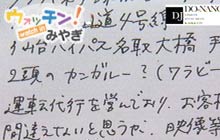 ウォッチン!
watch in
みやぎ
道4号線
仙台バイパス名取大橋
2頭のカンガルー?(ワラビ
運転代行を営んでおり、お客様
間違えてないと思うや、映像
DO-NANO